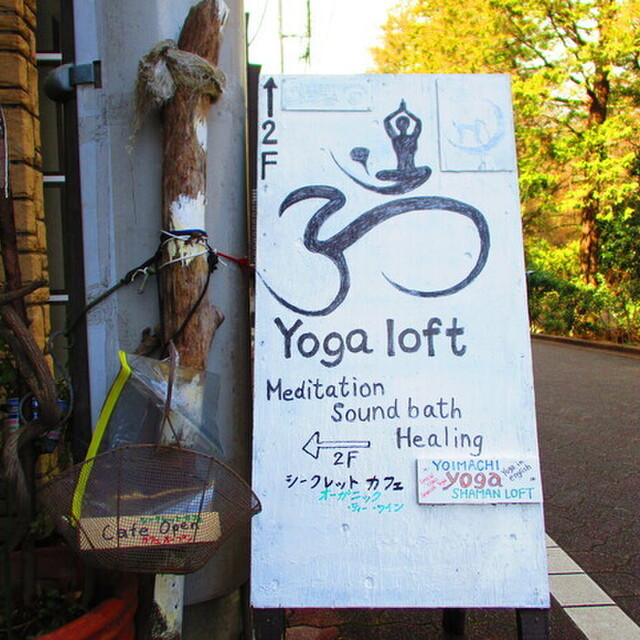 ↑2F
Yoga loft
Meditation
Sound bath
Healing
2F
シークレット カフェ
オーガニック
ティー・ワイン
YOIMACHI
yoga
Yoga in english
SHAMAN LOFT
Cafe Open